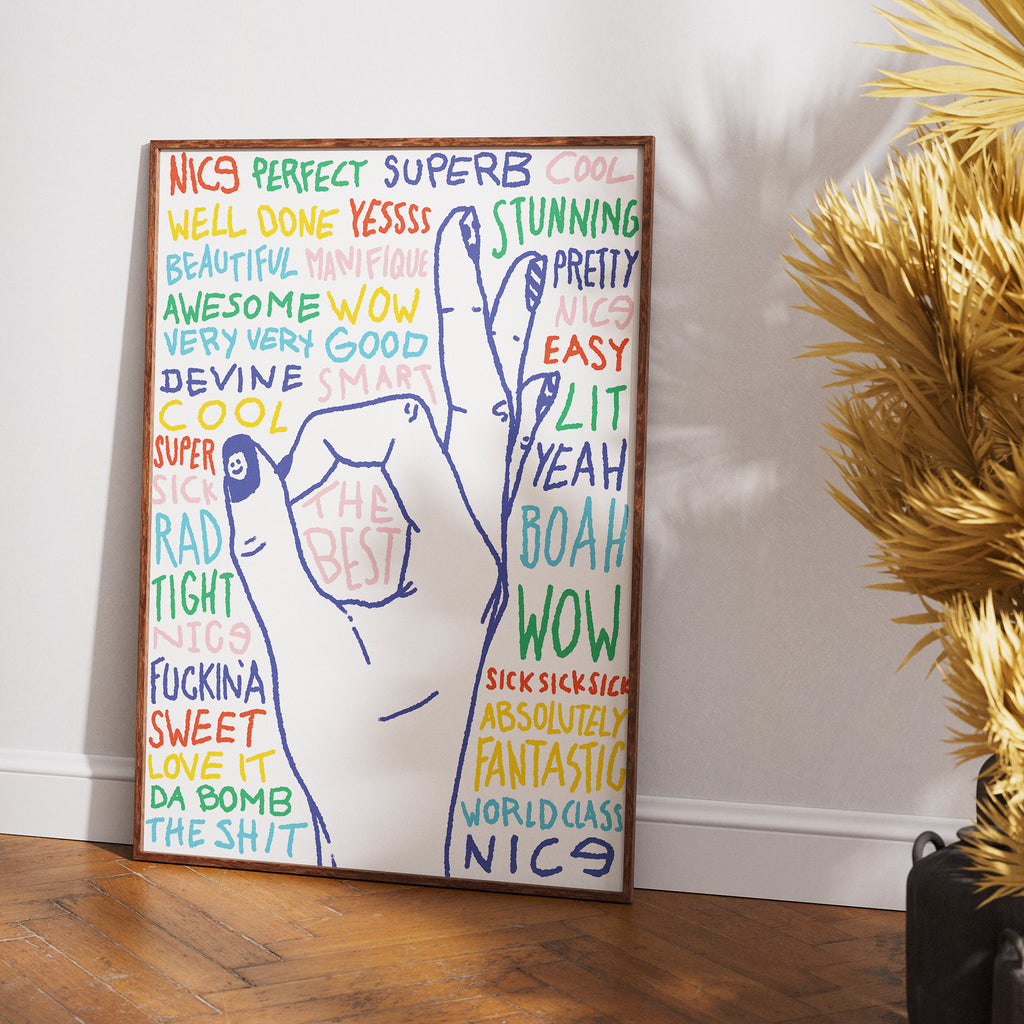 NICE PERFECT SUPERB COOL
WELL DONE YESSSS STUNNING
BEAUTIFUL MANIFIQUE PRETTY
AWESOME WOW NICE
VERY VERY GOOD EASY
DEVINE SMART LIT
COOL
SUPER YEAH
SICK
THE
BEST
RAD BOAH
TIGHT WOW
NICE
FUCKIN'A SICKSICKSICK
SWEET ABSOLUTELY
LOVE IT FANTASTIC
DA BOMB WORLDCLASS
THE SHIT NICE